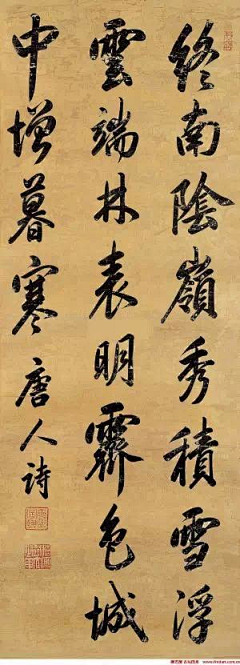 終南陰嶺秀積雪浮
雲端林表明霽色城
中增暮寒唐人詩